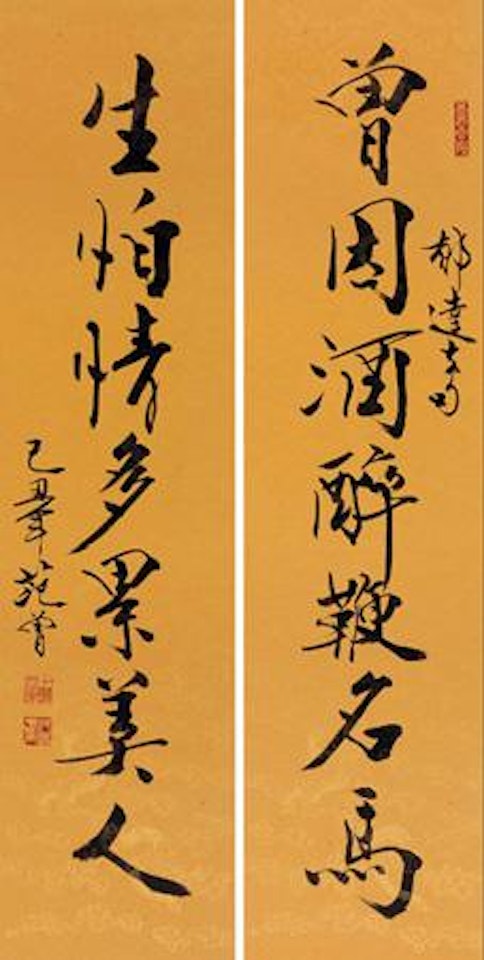 郁達夫句
曾因酒醉鞭名馬
生怕情多累美人
己丑年范曾